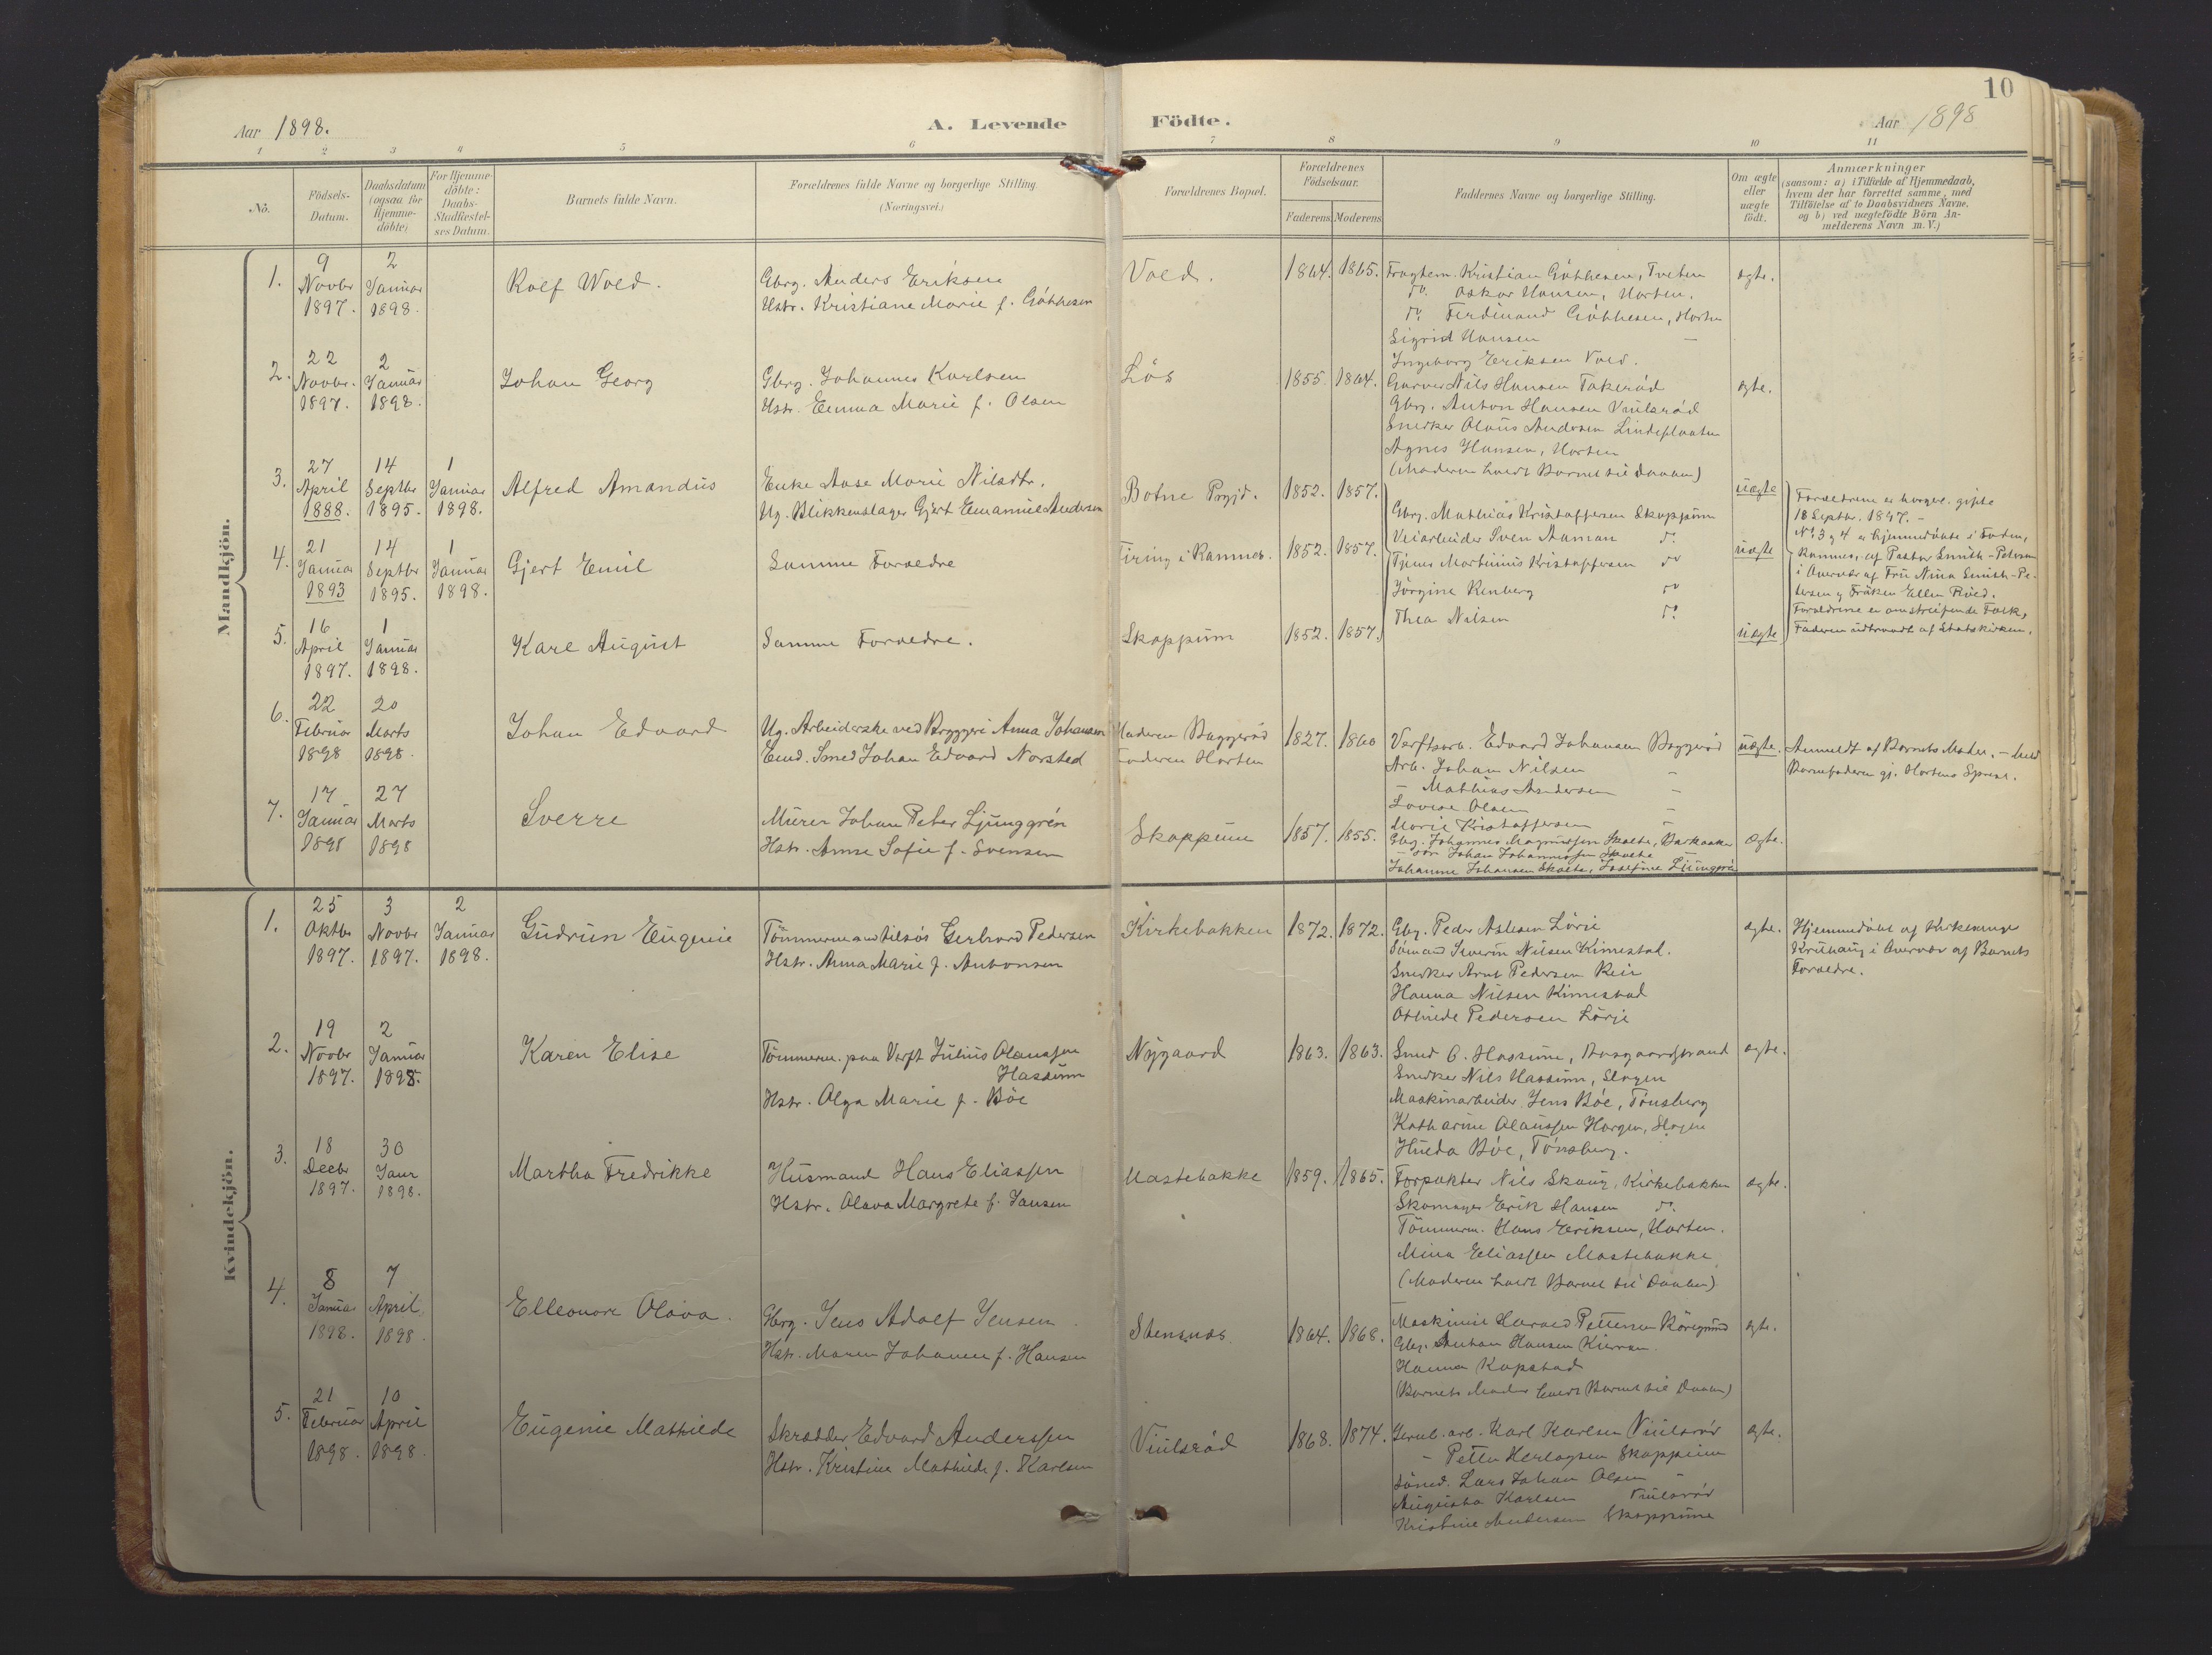 10
Aar 1898.
A. Levende Födte.
Aar 1898
1 2 3 4 5 6 7 8 9 10 11
No.
Födsels-
Datum.
Daabsdatum
(ogsaa for
Hjemme-
döbte)
For Hjemme-
döbte:
Daabs-
Stadfæstel-
ses Datum.
Barnets fulde Navn.
Forældrenes fulde Navne og borgerlige Stilling.
(Næringsvei.)
Forældrenes Bopæl.
Forældrenes
Födselsaar.
Faderens. Moderens.
Faddernes Navne og borgerlige Stilling.
Om ægte
eller
uægte
födt.
Anmærkninger
(saasom: a) i Tilfælde af Hjemmedaab,
hvem der har forrettet samme, med
Tilföielse af to Daabsvidners Navne,
og b) ved uægtefödte Börn An-
melderens Navn m. V.)
Mandkjön.
1.
9
Novbr
1897.
2
Januar
1898.
Rolf Wold.
Gbrg. Anders Eriksen
Hstr. Kristiane Marie f. Gåthesen
Vold.
1864. 1865.
Fragtem. Kristian Gåthesen, Tveten
do. Oskar Hansen, Horten.
do. Ferdinand Gåthesen, Horten
Sigrid Hansen —
Ingeborg Eriksen Vold.
ægte.
2.
22
Novbr.
1897.
2
Januar
1898.
Johan Georg
Gbrg. Johannes Karlsen
Hstr. Emma Marie f. Olsen
Lös
1855. 1864.
Garver Nils Hansen Takeröd
Gbrg. Anton Hansen Viulsröd
Snerker Olaus Andersen
Agnes Hansen, Horten
(Moderen holdt Barnet til Daaben)
ægte.
3.
27
April
1888.
14
Septbr
1895.
1
Januar
1898.
Alfred Amandus
Enke Aase Marie Nilsdtr.
Ug. Blikkenslager Gjert Emanuel Andersen
Botne Prgjd.
1852. 1857.
Gbrg. Mathias Kristoffersen Skoppum
Veiarbeider Sven Aaman do.
Tjener Martinius Kristoffersen do
Jörgine Renberg do
Thea Nilsen do.
uægte
Forældrene er borgerl. gifte
18 Septbr. 1897. —
No. 3 og 4 er hjemmedöbte i
Ramnes, af Pastor Smith-Petersen
i Overvær af Fru Nina Smith-Pe-
tersen og Fröken Ellen Röed.
Forældrene er omstreifende Folk,
Faderen udtraadt af Statskirken.
4.
21
Januar
1893
14
Septbr
1895.
1
Januar
1898.
Gjert Emil
Samme Forældre
Firing i Ramnes.
1852. 1857.
uægte
5.
16
April
1897.
1
Januar
1898.
Karl August
Samme Forældre.
Skoppum
1852. 1857.
uægte
6.
22
Februar
1898
20
Marts
1898.
Johan Edvard
Ug. Arbeiderske ved Bryggeri Anna Johansen
Emd. Smed Johan Edvard Norsted
Moderen Baggeröd
Faderen Horten
1827. 1860
Verftsarb. Edvard Johansen Baggeröd
Arb. Johan Nilsen —
— Mathias Andersen —
Lovise Olsen —
Marie Kristoffersen —
uægte.
Anmeldt af Barnets Moder. —
Barnefaderen gj. Hortens Sprest.
7.
17
Januar
1898
27
Marts
1898
Sverre
Murer Johan Peter Ljunggrén
Hstr. Anne Sofie f. Svensen
Skoppum
1857. 1855.
Gbg. Johannes Magnussen Skolte, Barkaaker
— sön Johan Johannessen Skolte
Johanne Johansen Skolte, Josefine Ljunggrén
ægte.
Kvindekjön.
1.
25
Oktbr
1897.
3
Novbr
1897.
2
Januar
1898.
Gudrun Eugenie
Tömmermand tilsös Gerhard Pedersen
Hstr. Anna Marie f. Antonsen
Kirkebakken
1872. 1872.
Gbg. Peder Aslesen Lörje
Sömand Severin Nilsen Kimestad.
Snerker Arnt Pedersen Reir
Hanna Nilsen Kimestad
Othilde Pedersen Lörje
ægte.
Hjemmedöbt af Kirkesanger
i Overvær af Barnets
Forældre.
2.
19
Novbr
1897.
2
Januar
1898.
Karen Elise
Tömmerm. paa Verft Julius Olaussen
Hassum
Hstr. Olga Marie f. Böe
Nygaard
1863. 1863.
Smed O. Hassum, Aasgaardstrand
Snedker Nils Hassum, Slagen
Maskinarbeider Jens Böe, Tönsberg
Katharine Olaussen Horgen, Slagen
Hulda Böe, Tönsberg.
ægte.
3.
18
Decbr
1897.
30
Janr
1898.
Martha Fredrikke
Husmand Hans Eliassen
Hstr. Olava Margrete f. Jansen
Mastebakke
1859. 1865.
Forpakter Nils Skaug, Kirkebakken
Skomager Erik Hansen do.
Tömmerm. Hans Eriksen, Horten.
Mina Eliassen Mastebakke
(Moderen holdt Barnet til Daaben)
ægte.
4.
8
Januar
1898.
7
April
1898.
Elleonore Olava.
Gbrg. Jens Adolf Jensen
Hstr. Maren Johanne f. Hansen
Stensnæs
1864. 1868.
Maskinist Harald Pettersen
Gbg. Anton Hansen
Hanna Kopstad
(Barnets Moder holdt Barnet til Daaben)
ægte.
5.
21
Februar
1898.
10
April
1898.
Eugenie Mathilde
Skrædder Edvard Anderssen
Hstr. Kristine Mathilde f. Karlsen
Viulsröd
1868. 1874.
Jernb. arb. Karl Karlsen Viulsröd
— Petter Herlogsen Skoppum
Sömd. Lars Johan Olsen —
Augusta Karlsen Viulsröd
Kristine Andersen Skoppum
ægte.